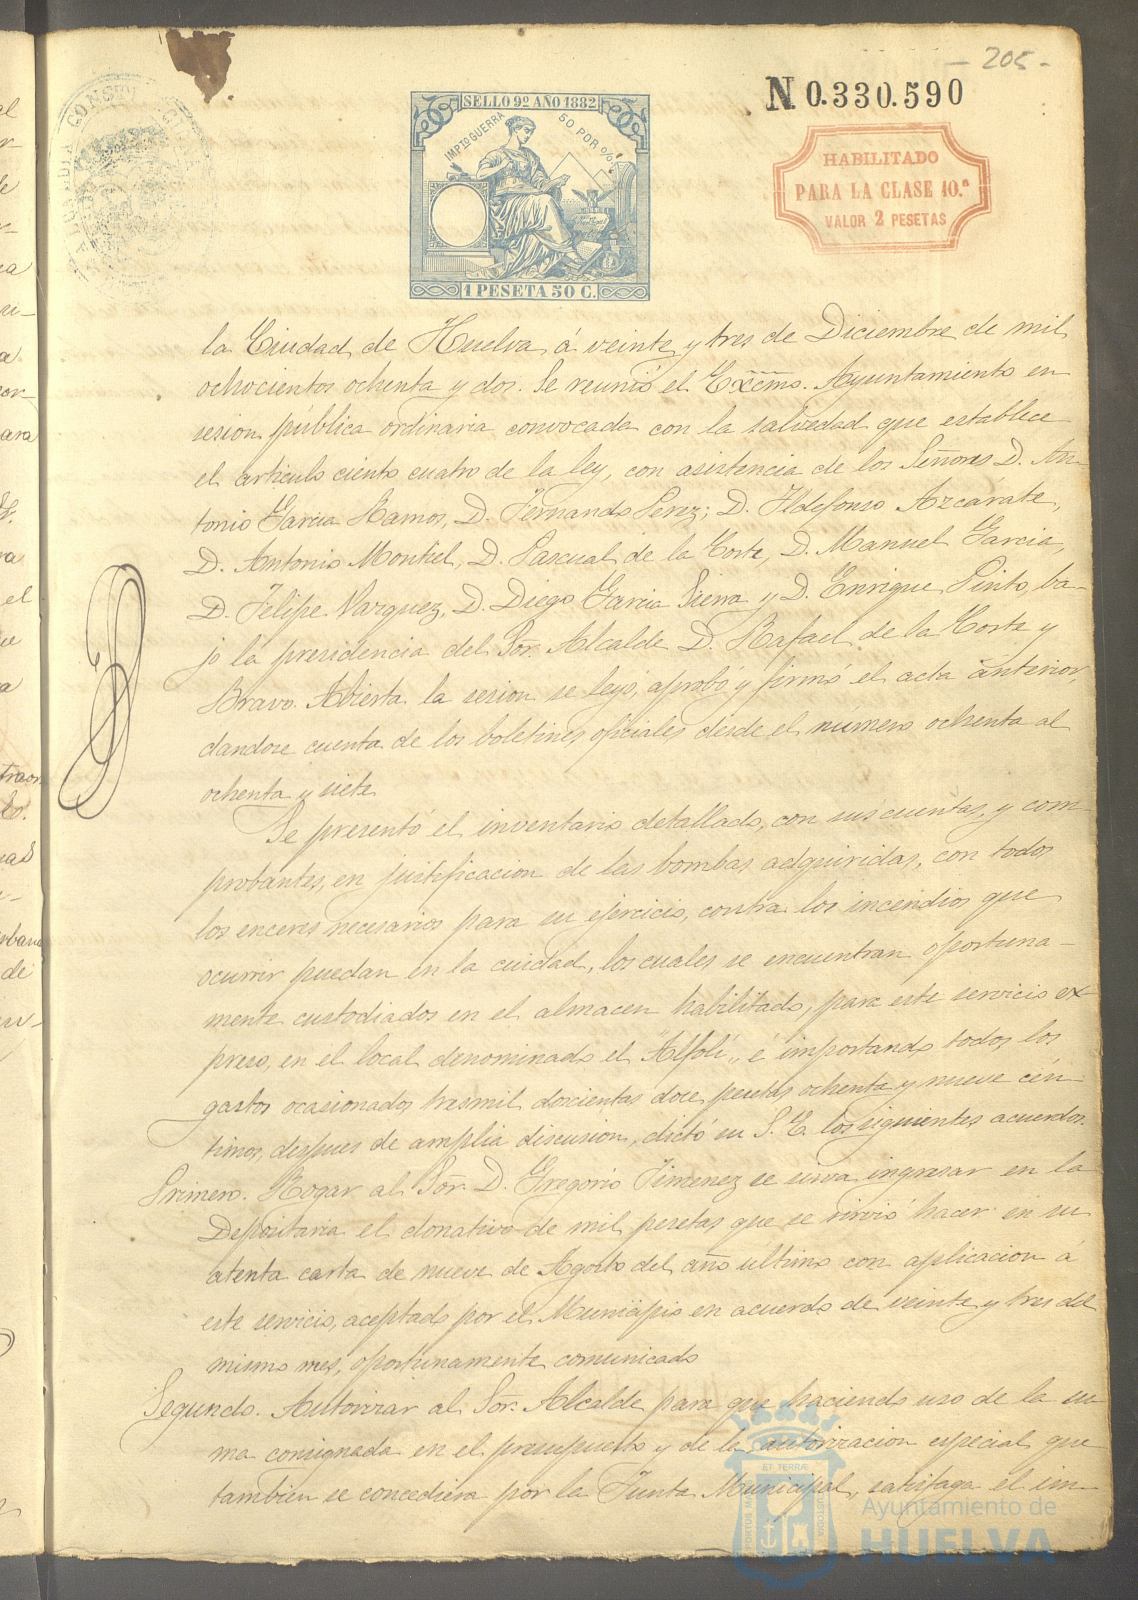 - 205 -
N 0.330.590
SELLO 9º AÑO 1882
IMPTO GUERRA 50 POR %
1 PESETA 50 C.
HABILITADO
PARA LA CLASE 10.ª
VALOR 2 PESETAS
la Ciudad de Huelva á veinte y tres de Diciembre de mil
ochocientos ochenta y dos. Se reunió el Excmo. Ayuntamiento en
sesion pública ordinaria convocada con la salvedad que establece
el articulo ciento cuatro de la ley, con asistencia de los Señores D. An-
tonio Garcia Ramos, D. Fernando Perez, D. Ildefonso Azcárate,
D. Antonio Montiel, D. Pascual de la Corte, D. Manuel Garcia,
D. Felipe Vazquez, D. Diego Garcia Sierra y D. Enrique Pinto, ba-
jo la presidencia del Sor. Alcalde D. Rafael de la Corte y
Bravo. Abierta la sesion se leyó, aprobó y firmó el acta anterior,
dandose cuenta de los boletines oficiales desde el número ochenta al
ochenta y siete
Se presentó el inventario detallado, con sus cuentas, y com-
probantes, en justificacion de las bombas adquiridas, con todos
los enceres necesarios para su ejercicio, contra los incendios que
ocurrir puedan en la ciudad, los cuales se encuentran oportuna-
mente custodiados en el almacen habilitado, para este servicio ex-
preso, en el local denominado el "Alfolí", é importando todos los
gastos ocasionados tresmil doscientas doce pesetas ochenta y nueve cén-
timos, despues de amplia discusion, dictó su S. E. los siguientes acuerdos.
Primero. Rogar al Sor. D. Gregorio Jimenez se sirva ingresar en la
Depositaria el donativo de mil pesetas que se sirvió hacer en su
atenta carta de nueve de Agosto del año último con aplicacion á
este servicio, aceptado por el Municipio en acuerdo de veinte y tres del
mismo mes, oportunamente comunicado
Segundo. Autorizar al Sor. Alcalde para que haciendo uso de la su-
ma consignada en el presupuesto y de la autorizacion especial que
tambien se concediera por la Junta Municipal, satisfaga el im-
Ayuntamiento de
HUELVA